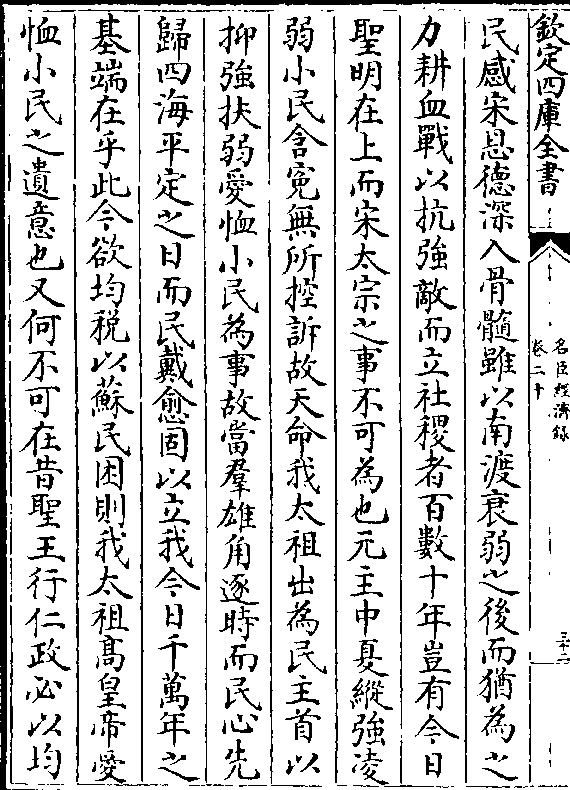 欽定四庫全書
名臣經濟録
卷二十
三十二
民感宋恩德深入骨髓雖以南渡衰弱之後而猶為之
力耕血戰以抗強敵而立社稷者百數十年豈有今日
聖明在上而宋太宗之事不可為也元主中夏縱強凌
弱小民含寃無所控訴故天命我太祖出為民主首以
抑強扶弱愛恤小民為事故當羣雄角逐時而民心先
歸四海平定之日而民戴愈固以立我今日千萬年之
基端在乎此今欲均税以蘇民困則我太祖髙皇帝愛
恤小民之遺意也又何不可在昔聖王行仁政必以均